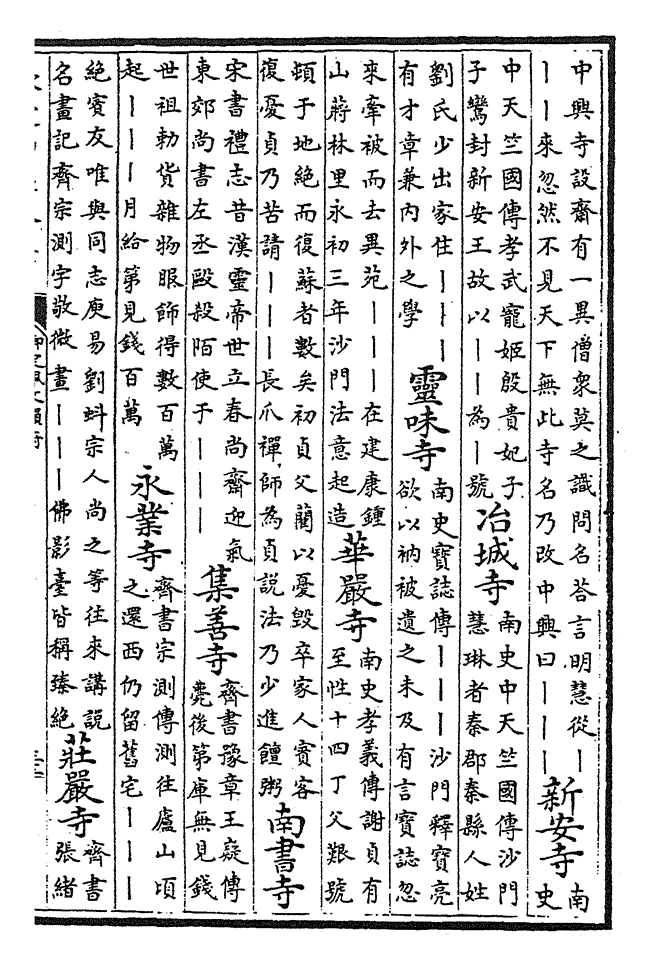 中興寺設齋有一異僧衆莫之識問名荅言明慧從｜
｜｜來忽然不見天下無此寺名乃改中興曰｜｜｜
新安寺
南
史
中天竺國傳孝武寵姬殷貴妃子
子鸞封新安王故以｜｜為｜號
冶城寺
南史中天竺國傳沙門
慧琳者秦郡秦縣人姓
劉氏少出家住｜｜｜
有才章兼内外之學
靈味寺
南史寶誌傳｜｜｜沙門釋寶亮
欲以衲被遺之未及有言寶誌忽
來牽被而去異苑｜｜｜在建康鍾
山蔣林里永初三年沙門法意起造
華嚴寺
南史孝義傳謝貞有
至性十四丁父艱號
頓于地絶而復蘇者數矣初貞父藺以憂毀卒家人賓客
復憂貞乃苦請｜｜｜長爪禪師為貞説法乃少進饘粥
南書寺
宋書禮志昔漢靈帝世立春尚齋迎氣
東郊尚書左丞毆殺陌使于｜｜｜
集善寺
齊書豫章王嶷傳
薨後第庫無見錢
世祖勅貨雜物服飾得數百萬
起｜｜｜月給第見錢百萬
永業寺
齊書宗測傳測往廬山頃
之還西仍留舊宅｜｜｜
絶賓友唯與同志庾易劉蚪宗人尚之等往來講説
名畫記齊宗測字敬微畫｜｜｜佛影臺皆稱臻絶
莊嚴寺
齊書
張緒